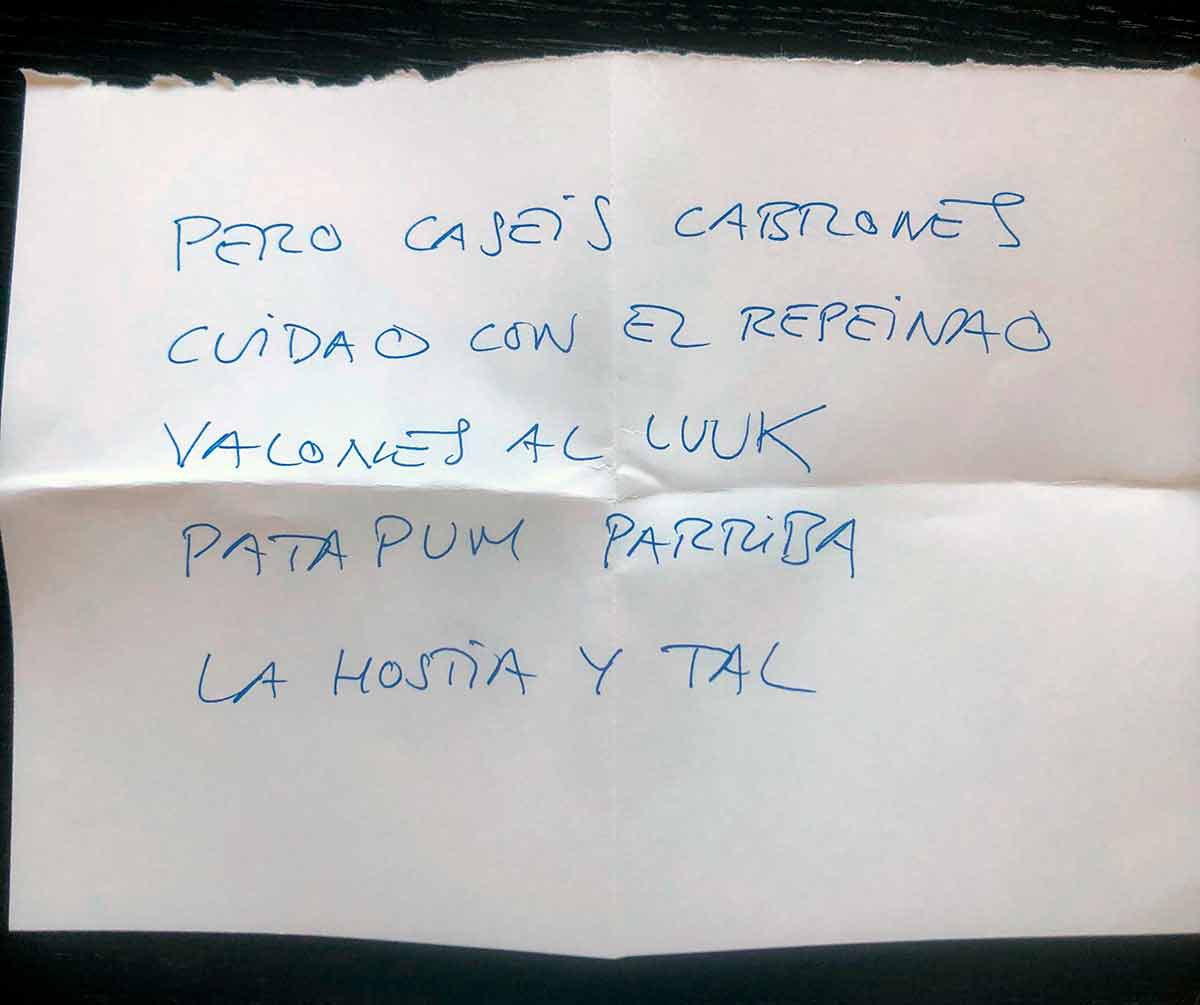 PERO CASEIS CABRONES
CUIDAO CON EL REPEINAO
VALONES AL LUUK
PATAPUM PARRIBA
LA HOSTIA Y TAL